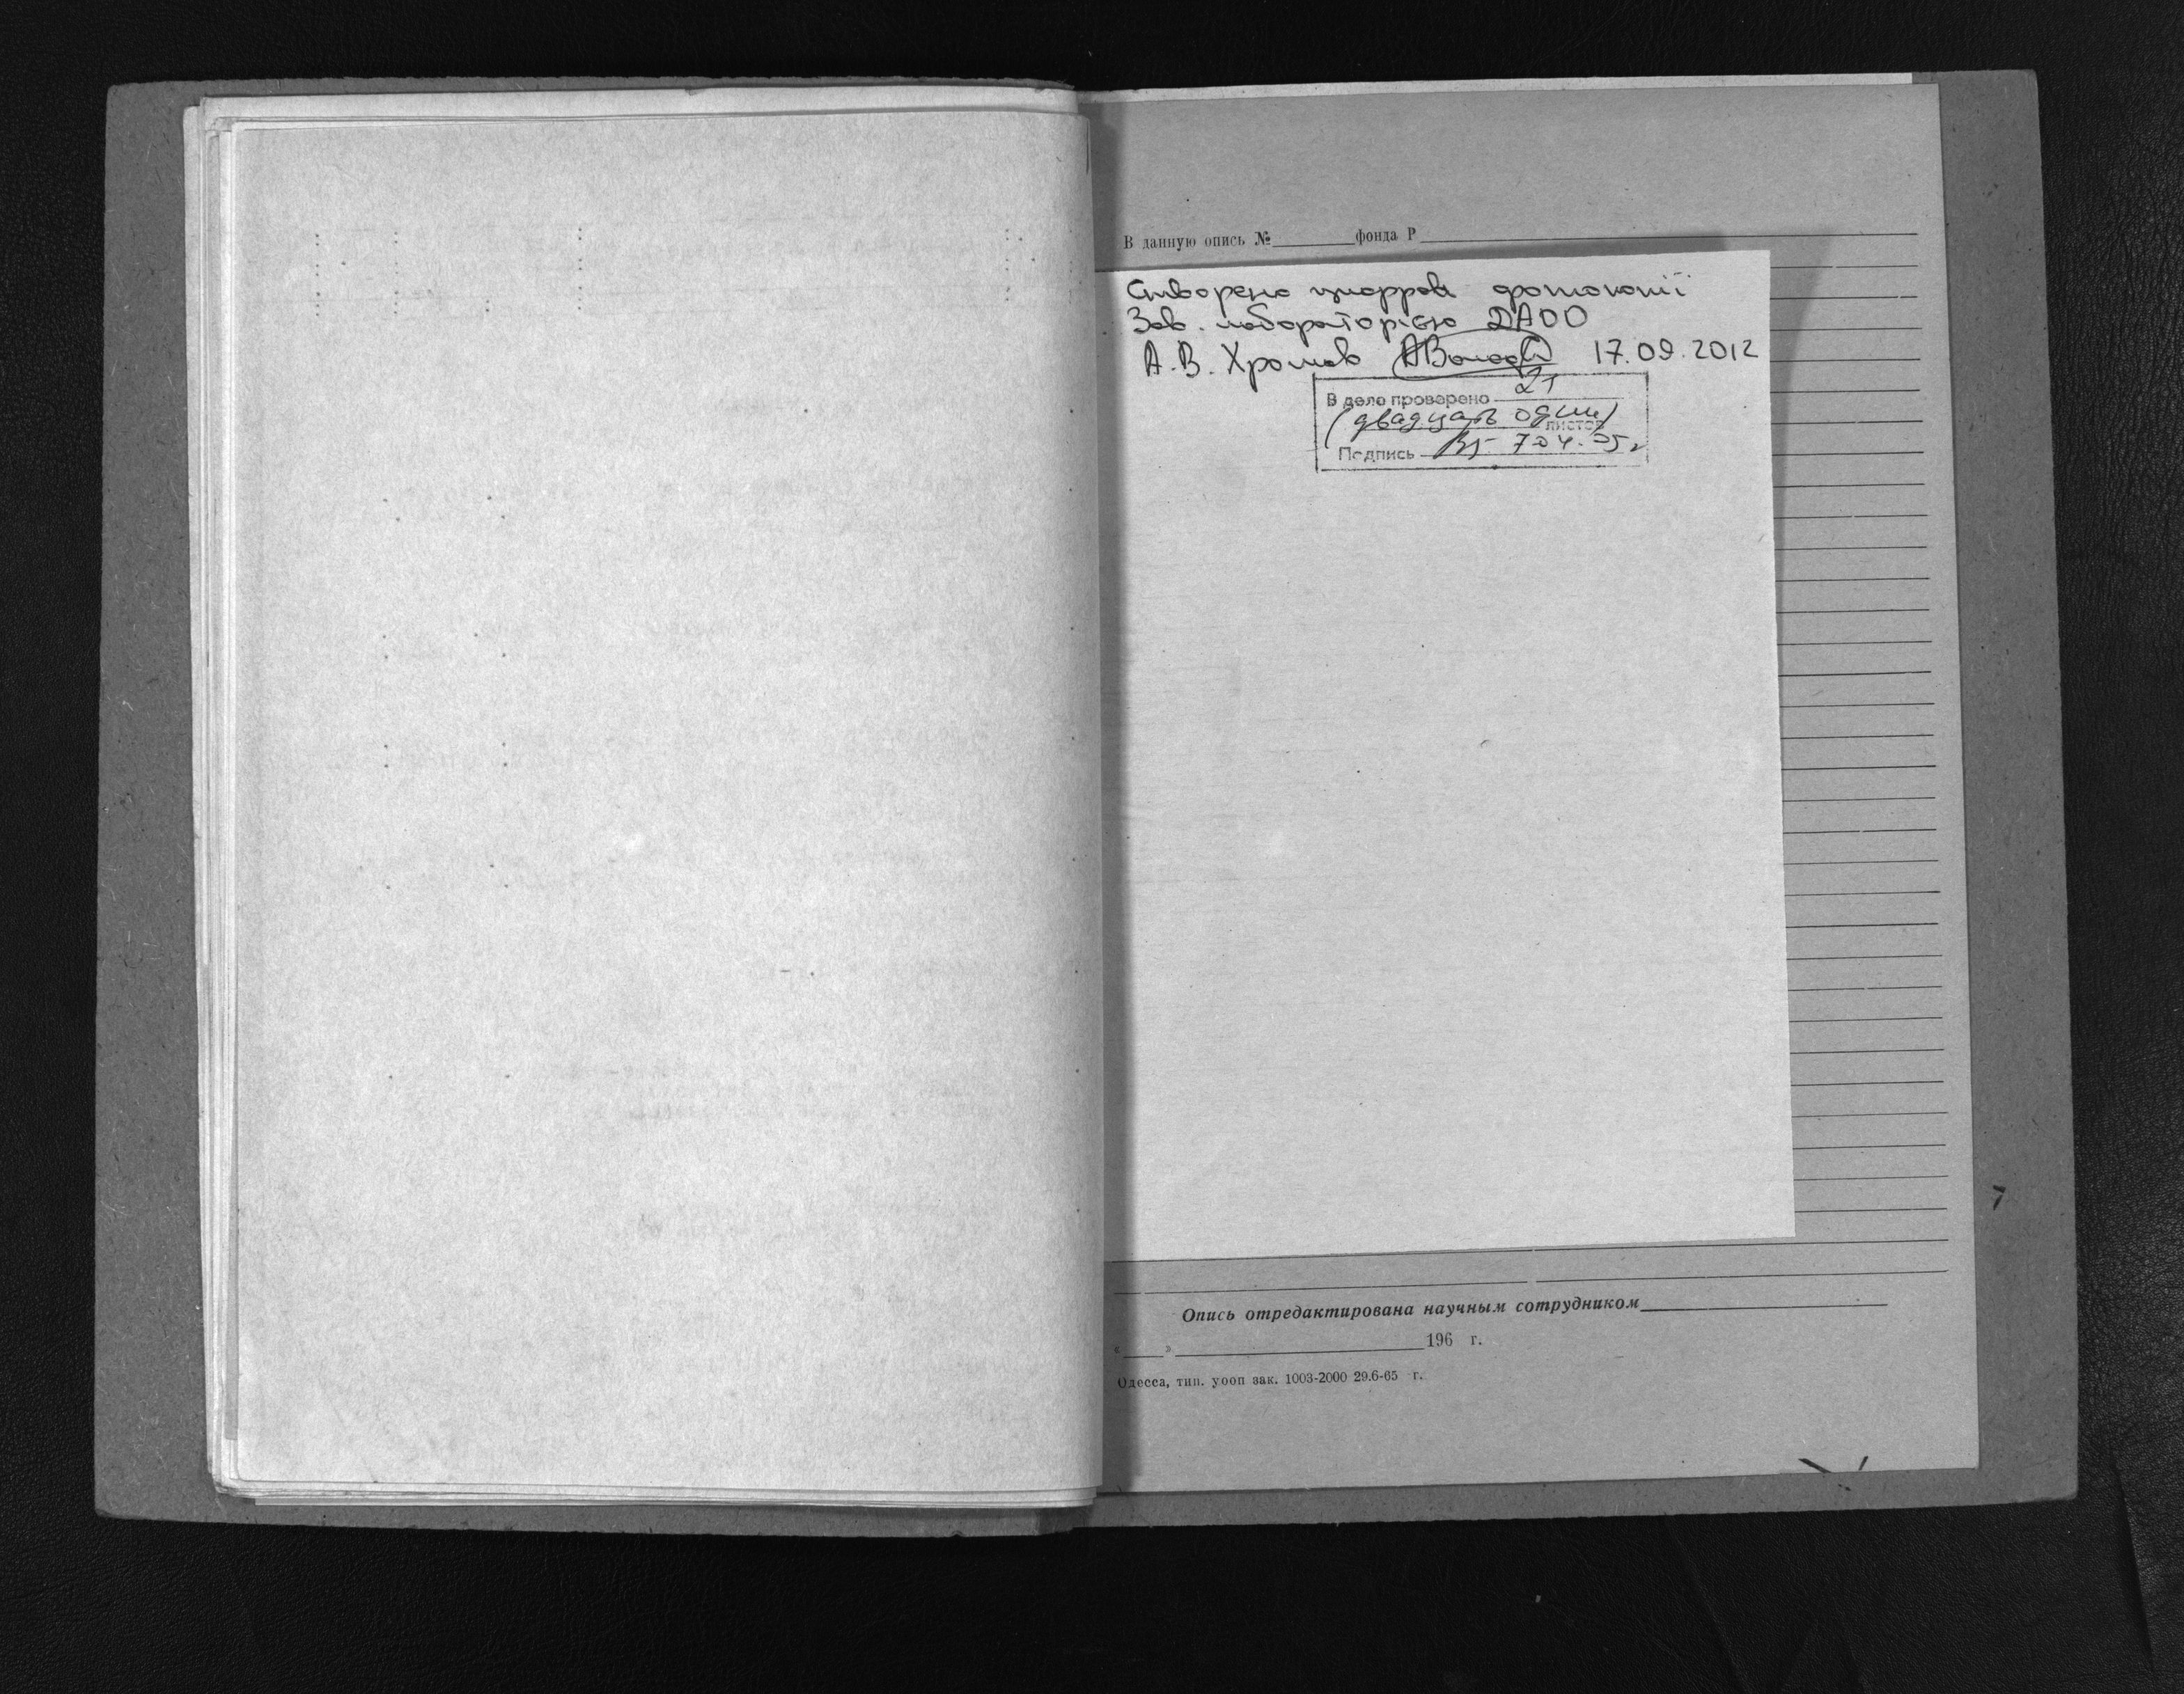 В данную опись № фонда Р
Створено цифрові фотокопії
Зав. лабораторією ДАОО
А.В. Хромов 17.09.2012
В деле проверено 21
(двадцать один)
листов
Подпись
Опись отредактирована научным сотрудником
« » 196 г.
Одесса, тип. уооп зак. 1003-2000 29.6-65 г.